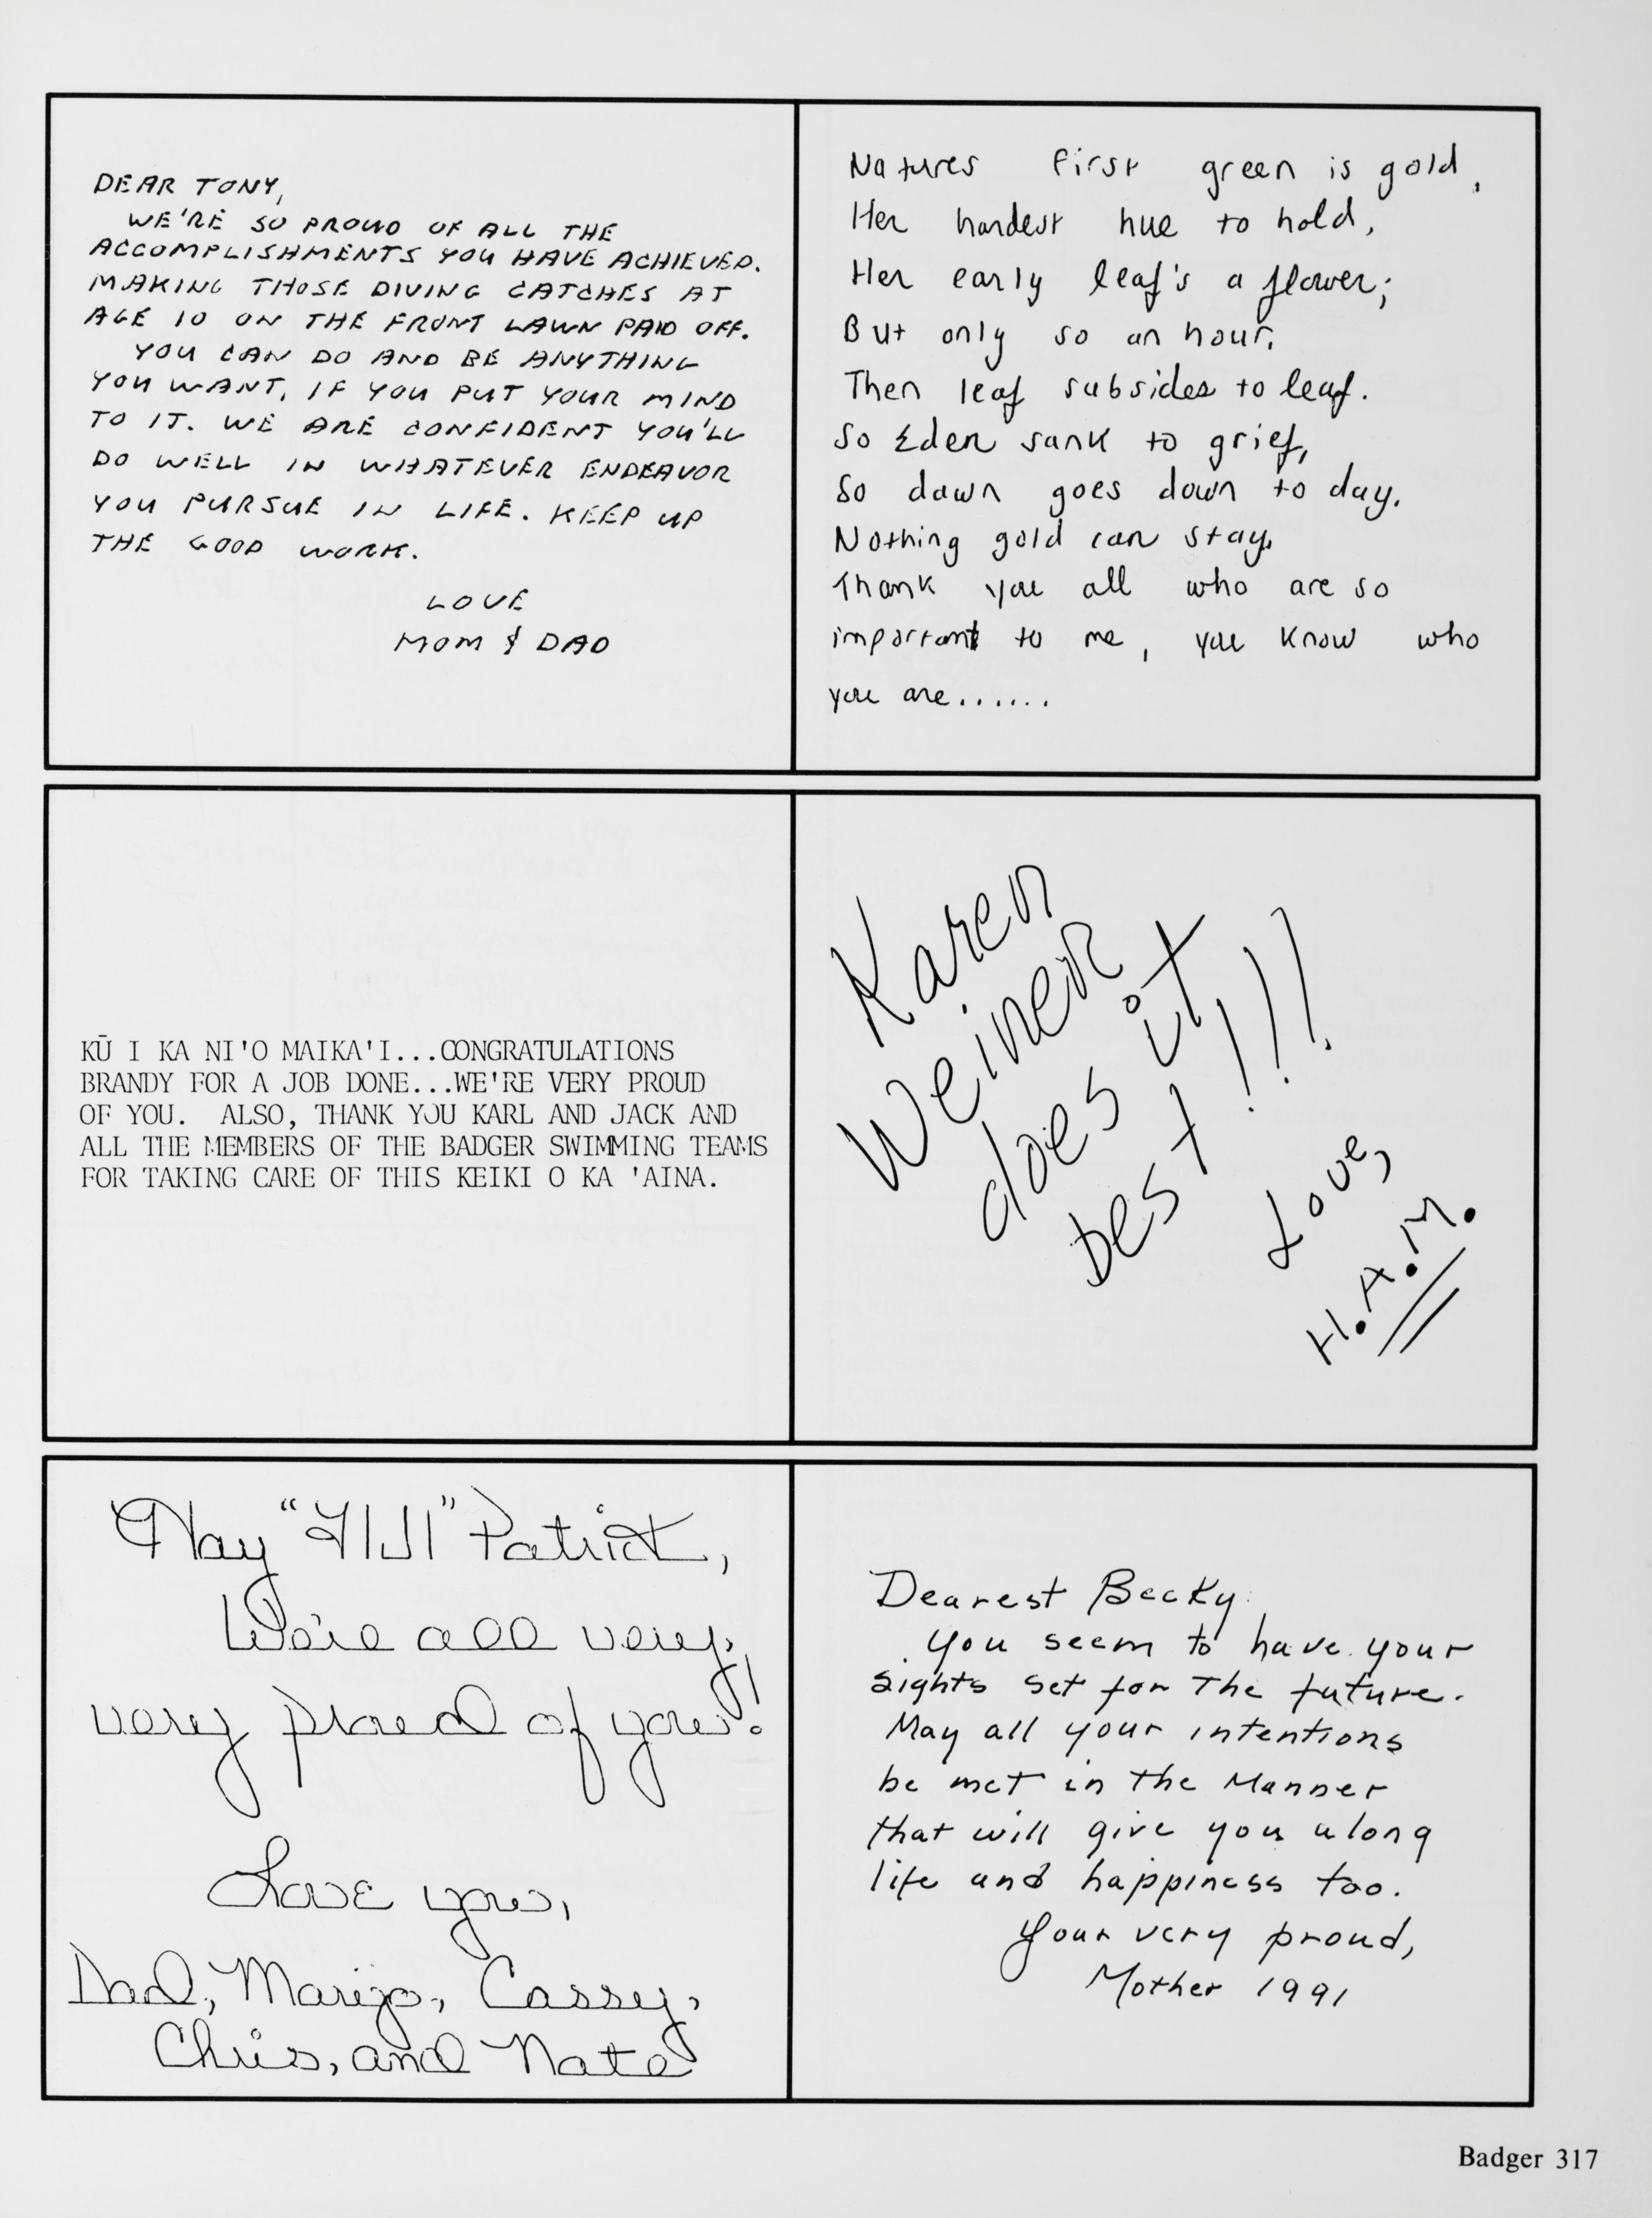 DEAR TONY,
WE'RE SO PROUD OF ALL THE
ACCOMPLISHMENTS YOU HAVE ACHIEVED.
MAKING THOSE DIVING CATCHES AT
AGE 10 ON THE FRONT LAWN PAID OFF.
YOU CAN DO AND BE ANYTHING
YOU WANT, IF YOU PUT YOUR MIND
TO IT. WE ARE CONFIDENT YOU'LL
DO WELL IN WHATEVER ENDEAVOR
YOU PURSUE IN LIFE. KEEP UP
THE GOOD WORK.
LOVE
MOM & DAD
Natures first green is gold,
Her hardest hue to hold,
Her early leaf's a flower;
But only so an hour.
Then leaf subsides to leaf.
So Eden sank to grief,
So dawn goes down to day.
Nothing gold can stay.
Thank you all who are so
important to me, you know who
you are......
KŪ I KA NI'O MAIKA'I...CONGRATULATIONS
BRANDY FOR A JOB DONE...WE'RE VERY PROUD
OF YOU. ALSO, THANK YOU KARL AND JACK AND
ALL THE MEMBERS OF THE BADGER SWIMMING TEAMS
FOR TAKING CARE OF THIS KEIKI O KA 'AINA.
Karen
Weiner
does it
best!!!
Love,
H.A.M.
Hay "FIJI" Patrick,
We're all very,
very proud of you!
Love you,
Dad, Marijo, Cassey,
Chris, and Nate
Dearest Becky
You seem to have your
sights set for the future.
May all your intentions
be met in the Manner
that will give you a long
life and happiness too.
Your very proud,
Mother 1991
Badger 317